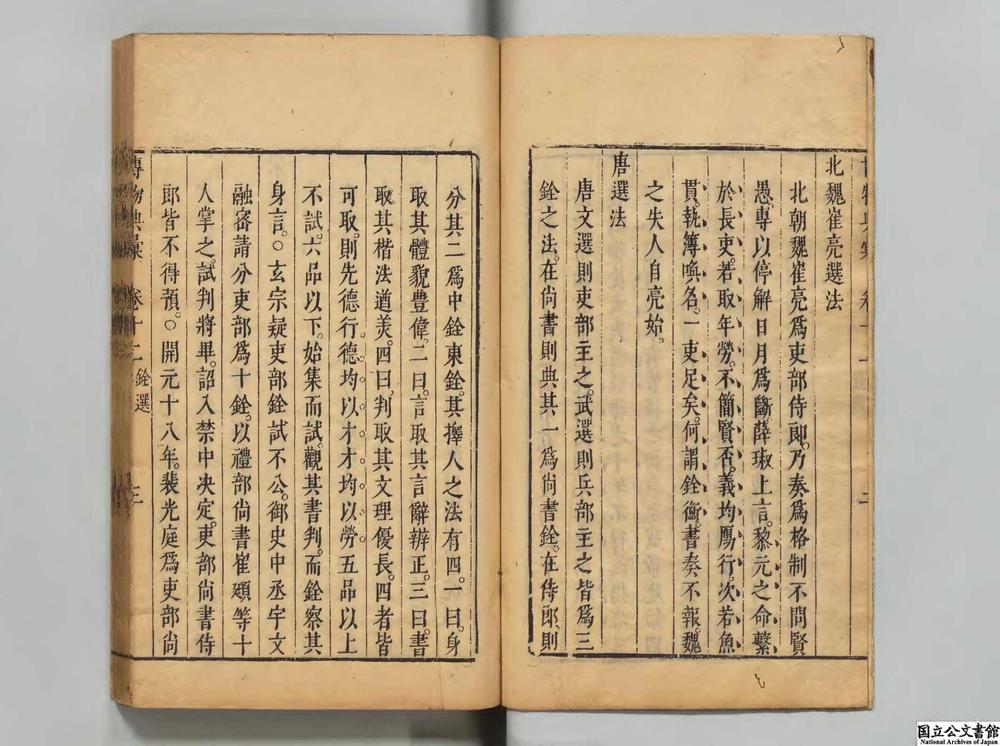 北魏崔亮選法
北朝魏崔亮爲吏部侍郎。乃奏爲格制不問賢
愚。專以停解日月爲斷薛琡上言。黎元之命繫
於長吏。若取年勞。不簡賢否。義均鴈行。次若魚
貫。執簿喚名。一吏足矣。何謂銓衡。書奏不報魏
之失人自亮始。
唐選法
唐文選則吏部主之。武選則兵部主之皆爲三
銓之法。在尙書則典其一爲尙書銓。在侍郎則
分其二爲中銓東銓。其擇人之法有四。一曰。身
取其體貌豐偉。二曰。言取其言辭辨正。三曰。書
取其楷法遒美。四曰。判取其文理優長。四者皆
可取。則先德行。德均以才。才均以勞。五品以上
不試。六品以下。始集而試。觀其書判。而銓察其
身言。○玄宗疑吏部銓試不公。御史中丞宇文
融密請分吏部爲十銓。以禮部尙書崔頲等十
人掌之。試判將畢。詔入禁中决定。吏部尙書侍
郎皆不得預。○開元十八年。裴光庭爲吏部尙
博物典彙 卷十二 銓選 三
国立公文書館
National Archives of Japan